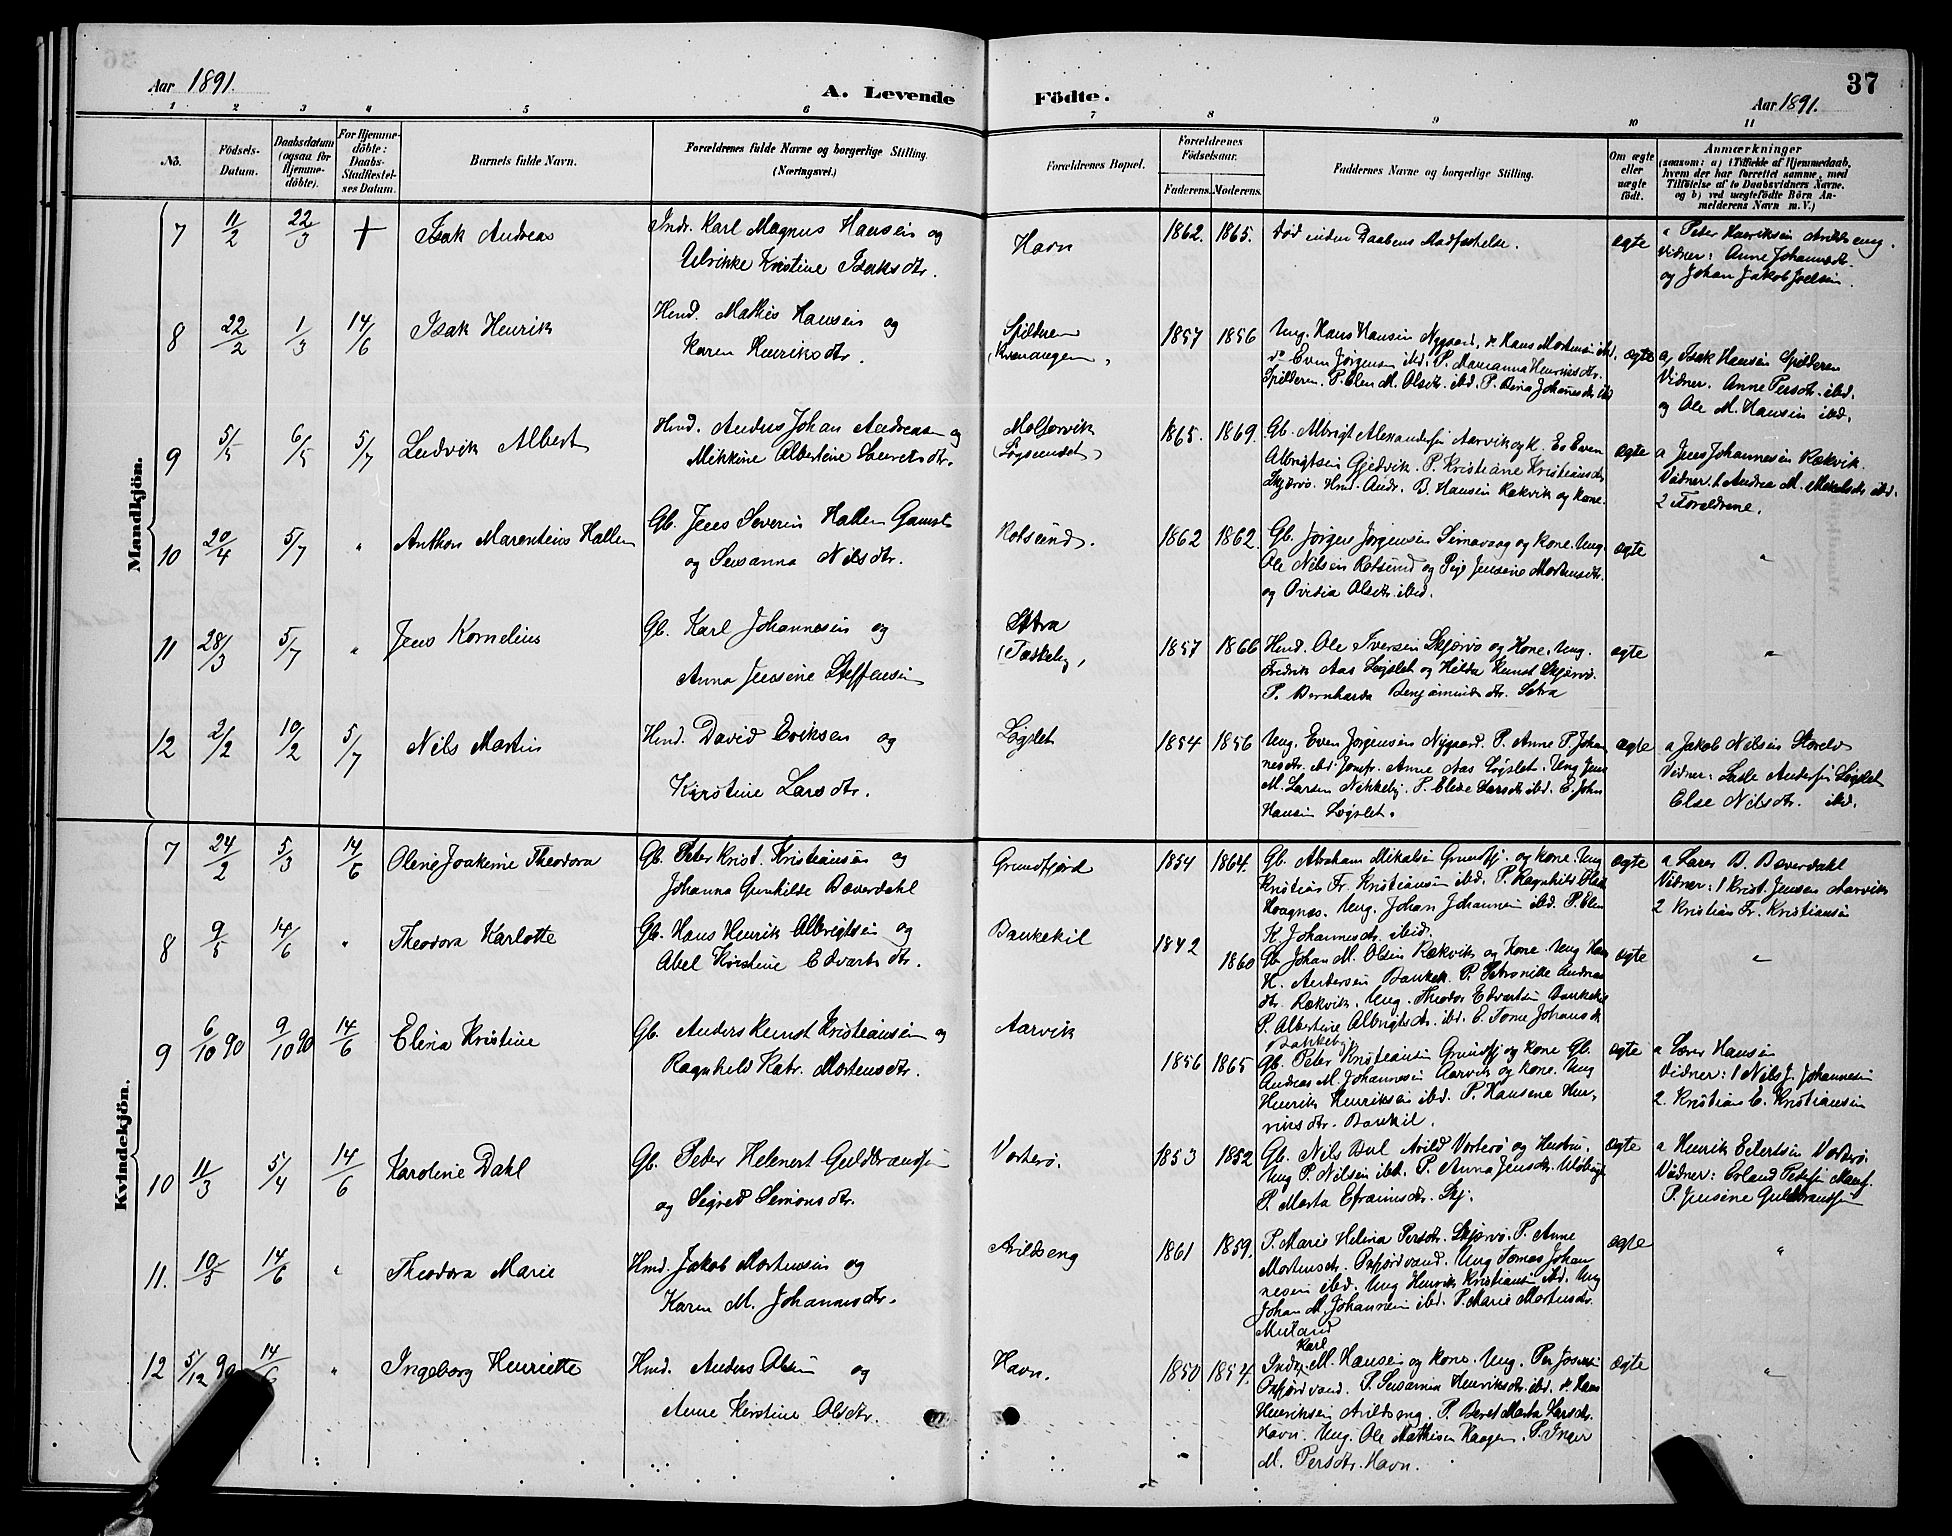 Aar 1891.
A. Levende
Födte.
37
Aar 1891.
1 2 3 4 5 6 7 8 9 10 11
No.
Födsels-Datum.
Daabsdatum (ogsaa for Hjemme-döbte).
For Hjemme-döbte: Daabs-Stadfæstel-ses Datum.
Barnets fulde Navn.
Forældrenes fulde Navne og borgerlige Stilling. (Næringsvei.)
Forældrenes Bopæl.
Forældrenes Födselsaar.
Faderens. Moderens.
Faddernes Navne og borgerlige Stilling.
Om ægte eller uægte födt.
Anmærkninger
(saasom: a) i Tilfælde af Hjemmedaab, hvem der har forrettet samme, med Tilföielse af to Daabsvidners Navne. og b) ved uægtefödte Börn An-melderens Navn m. V.)
Mandkjön.
7 11/2 22/3 + Isak Andreas
Indr. Karl Magnus Hansen og
Ulrikke Kristine Isaksdtr.
Havn 1862. 1865. Død inden Daabens Stadfæstelse. ægte
a Peter Henriksen Arildseng.
Vidner: Anne Johannsdtr
og Johan Jakob Joelsen.
8 22/2 1/3 14/6 Isak Henrik
Hmd. Mathis Hansen og
Karen Henriksdtr.
Spilderen
(Kvænangen)
1857 1856
Ung. Hans Hansen Nygaard, do Hans Mortensen ibd.
do Even Jørgensen ibd. P. Marianna Henriksdtr.
Spilderen. P. Elen M. Olsdtr. ibd. P. Beria Johannesdtr ibd
ægte
a, Isak Hansen Spilderen
Vidner. Anne Persdtr. ibd.
og Ole M. Hansen ibd.
9 5/5 6/5 5/7 Ludvik Albert
Hmd. Anders Johan Andreasen og
Mikkine Albertine Lauretsdtr.
(Løgsundet)
1865. 1869.
Gb. Albrigt Alexandersen Aarvik og K. Es Even
Albrigtsen Gjedvik. P. Kristiane Kristiansdtr
Skjærvø. Hmd. Andr. B. Hansen Rækvik og Kone.
ægte
a Jens Johannesen Rækvik.
Vidner. 1 Andrea M. Mikelsdtr ibd.
2 Forældrene.
10 20/4 5/7 " Anthon Marentius Hallen
Gb. Jens Severin Hallen Gamst
og Susanna Nilsdtr.
Rotsund. 1862 1862.
Gb. Jørgen Jørgensen Simavaag og Kone. Ung.
Ole Nilsen Rotsund og Pige Jensine Mortensdtr.
og Ovidia Olsdtr. ibid.
ægte "
11 28/3 5/7 " Jens Kornelius
Gb. Karl Johannesen og
Anna Jensine Steffensen
Sætra
(Taskeby)
1857 1866
Hmd. Ole Iversen Skjærvø og Kone. Ung.
Fredrik Aas Løgslet og Hilda Kunst Skjærvø.
P. Bernharda Benjaminsdtr. Sætra
ægte "
12 2/2 10/2 5/7 Nils Martin
Hmd. David Eriksen og
Kirstine Larsdtr.
Løgslet 1854 1856
Ung. Even Jørgensen Nygaard. P. Anne P. Johan
nesdtr. ibd. Jomfr. Anne Aas Løgslet. Ung Jens
M. Larsen Nikkeby. P. Elise Larsdtr ibd. E. John
Hansen Løgslet.
ægte
a Jakob Nilsen Storelv
Vidner: Salle Andersen Løgslet
Else Nilsdtr. ibd.
Kvindekjön.
7 24/2 5/3 14/6 Oline Joakime Theodora
Gb. Peter Krist. Kristiansen og
Johanna Gunhilde Bæverdahl
Grundfjord 1854 1864.
Gb. Abraham Mikalsen Grundfj. og Kone. Ung
Kristian Fr. Kristiansen ibd. P. Ragnhild
Haagnæs. Ung. Johan Johannesen ibd. P. Elen
K Johannesdtr. ibid.
ægte
a Lars B. Bæverdahl
Vidner: 1 Krist. Jensen Aarvik
2 Kristian Fr. Kristiansen
8 9/5 14/6 " Theodora Karlotte
Gb. Hans Henrik Albrigtsen og
Abel Kirstine Edvartsdtr.
Baukekil 1842 1860
Gb. Johan M. Olsen Rækvik og Kone. Ung Hans
K. Andersen Baukek. P. Petronille Andreas
dtr. Rækvik. Ung. Theodor Edvartsen Baukekil
P. Albertine Albrigtsdtr. ibd. E. Tome Johansdtr
ægte "
9 6/10 90 9/10 90 14/6 Elena Kristine
Gb. Anders Kunst Kristiansen og
Ragnhild Katr. Mortensdtr.
Aarvik 1856 1865
Gb. Peter Kristiansen Grundfj og Kone Gb.
Andreas M. Johannesen Aarvik og Kone. Ung
Henrik Henriksen ibd. P. Hansena Hen,
riksdtr. Baukil.
ægte
a Hansen
Vidner: 1 Nils J. Johannesen
2. Kristian E. Kristiansen
10 11/3 5/4 14/6 Karoline Dahl
Gb. Peder Helmert Guldbrandsen
og Sigred Simonsdtr.
Vorterø. 1853 1852
Gb. Nils Bul Arild Vorterø og Hustru.
Ung P. Nilsen ibd. P. Anna Jensdtr.
P. Marta Efraimsdtr. Skj.
ægte
a Henrik Eilertsen Vorterø
Vidner: Erland Petersen
P. Jensine Guldbrandsen
11. 10/5 14/6 " Theodora Marie
Hmd. Jakob Mortensen og
Karen M. Johannesdtr.
Arildseng 1861 1859.
P. Marie Helena Persdtr. Skjærvø. P. Anne
Mortensdtr. Oxfjordvand. Ung Tomas Johan
nesen ibd. Ung Henrik Kristiansen ibd. Ung
Johan M. Johannesen ibd. P. Marie Mortensdtr.
ægte "
12 5/12 90 14/6 " Ingeborg Henriette
Hmd. Anders Olsen og
Anne Kirstine Olsdtr.
Havn. 1850 1854.
Karl
Indr. M. Hansen og Kone. Ung. Per
Oxfjordvand. P. Susanna Henriksdtr. ibd. do Hans
Henriksen Arildseng. P. Beret Marta Larsdtr.
Havn. Ung. Ole Mathisen Kaagen. P. Inger
M. Persdtr. Havn.
ægte "